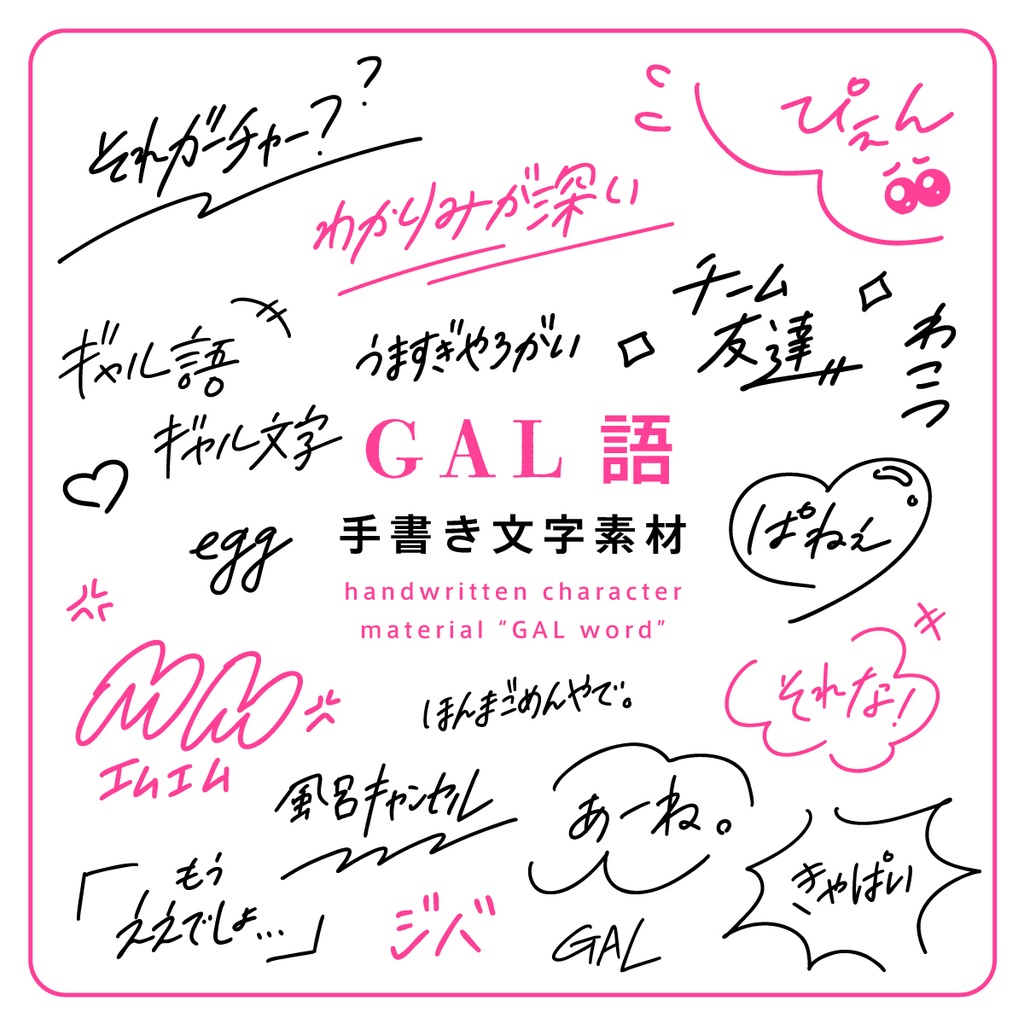 それガーチャー??
ぴえん
わかりみが深い
チーム
友達
わこつ
ギャル語
うますぎやろがい
ギャル文字
GAL 語
手書き文字素材
handwritten character
material “GAL word”
egg
ぱねぇ
MM
エムエム
ほんまごめんやで。
それな!
風呂キャンセル
あーね。
「もう
ええでしょ...」
ジバ
GAL
きゃぱい